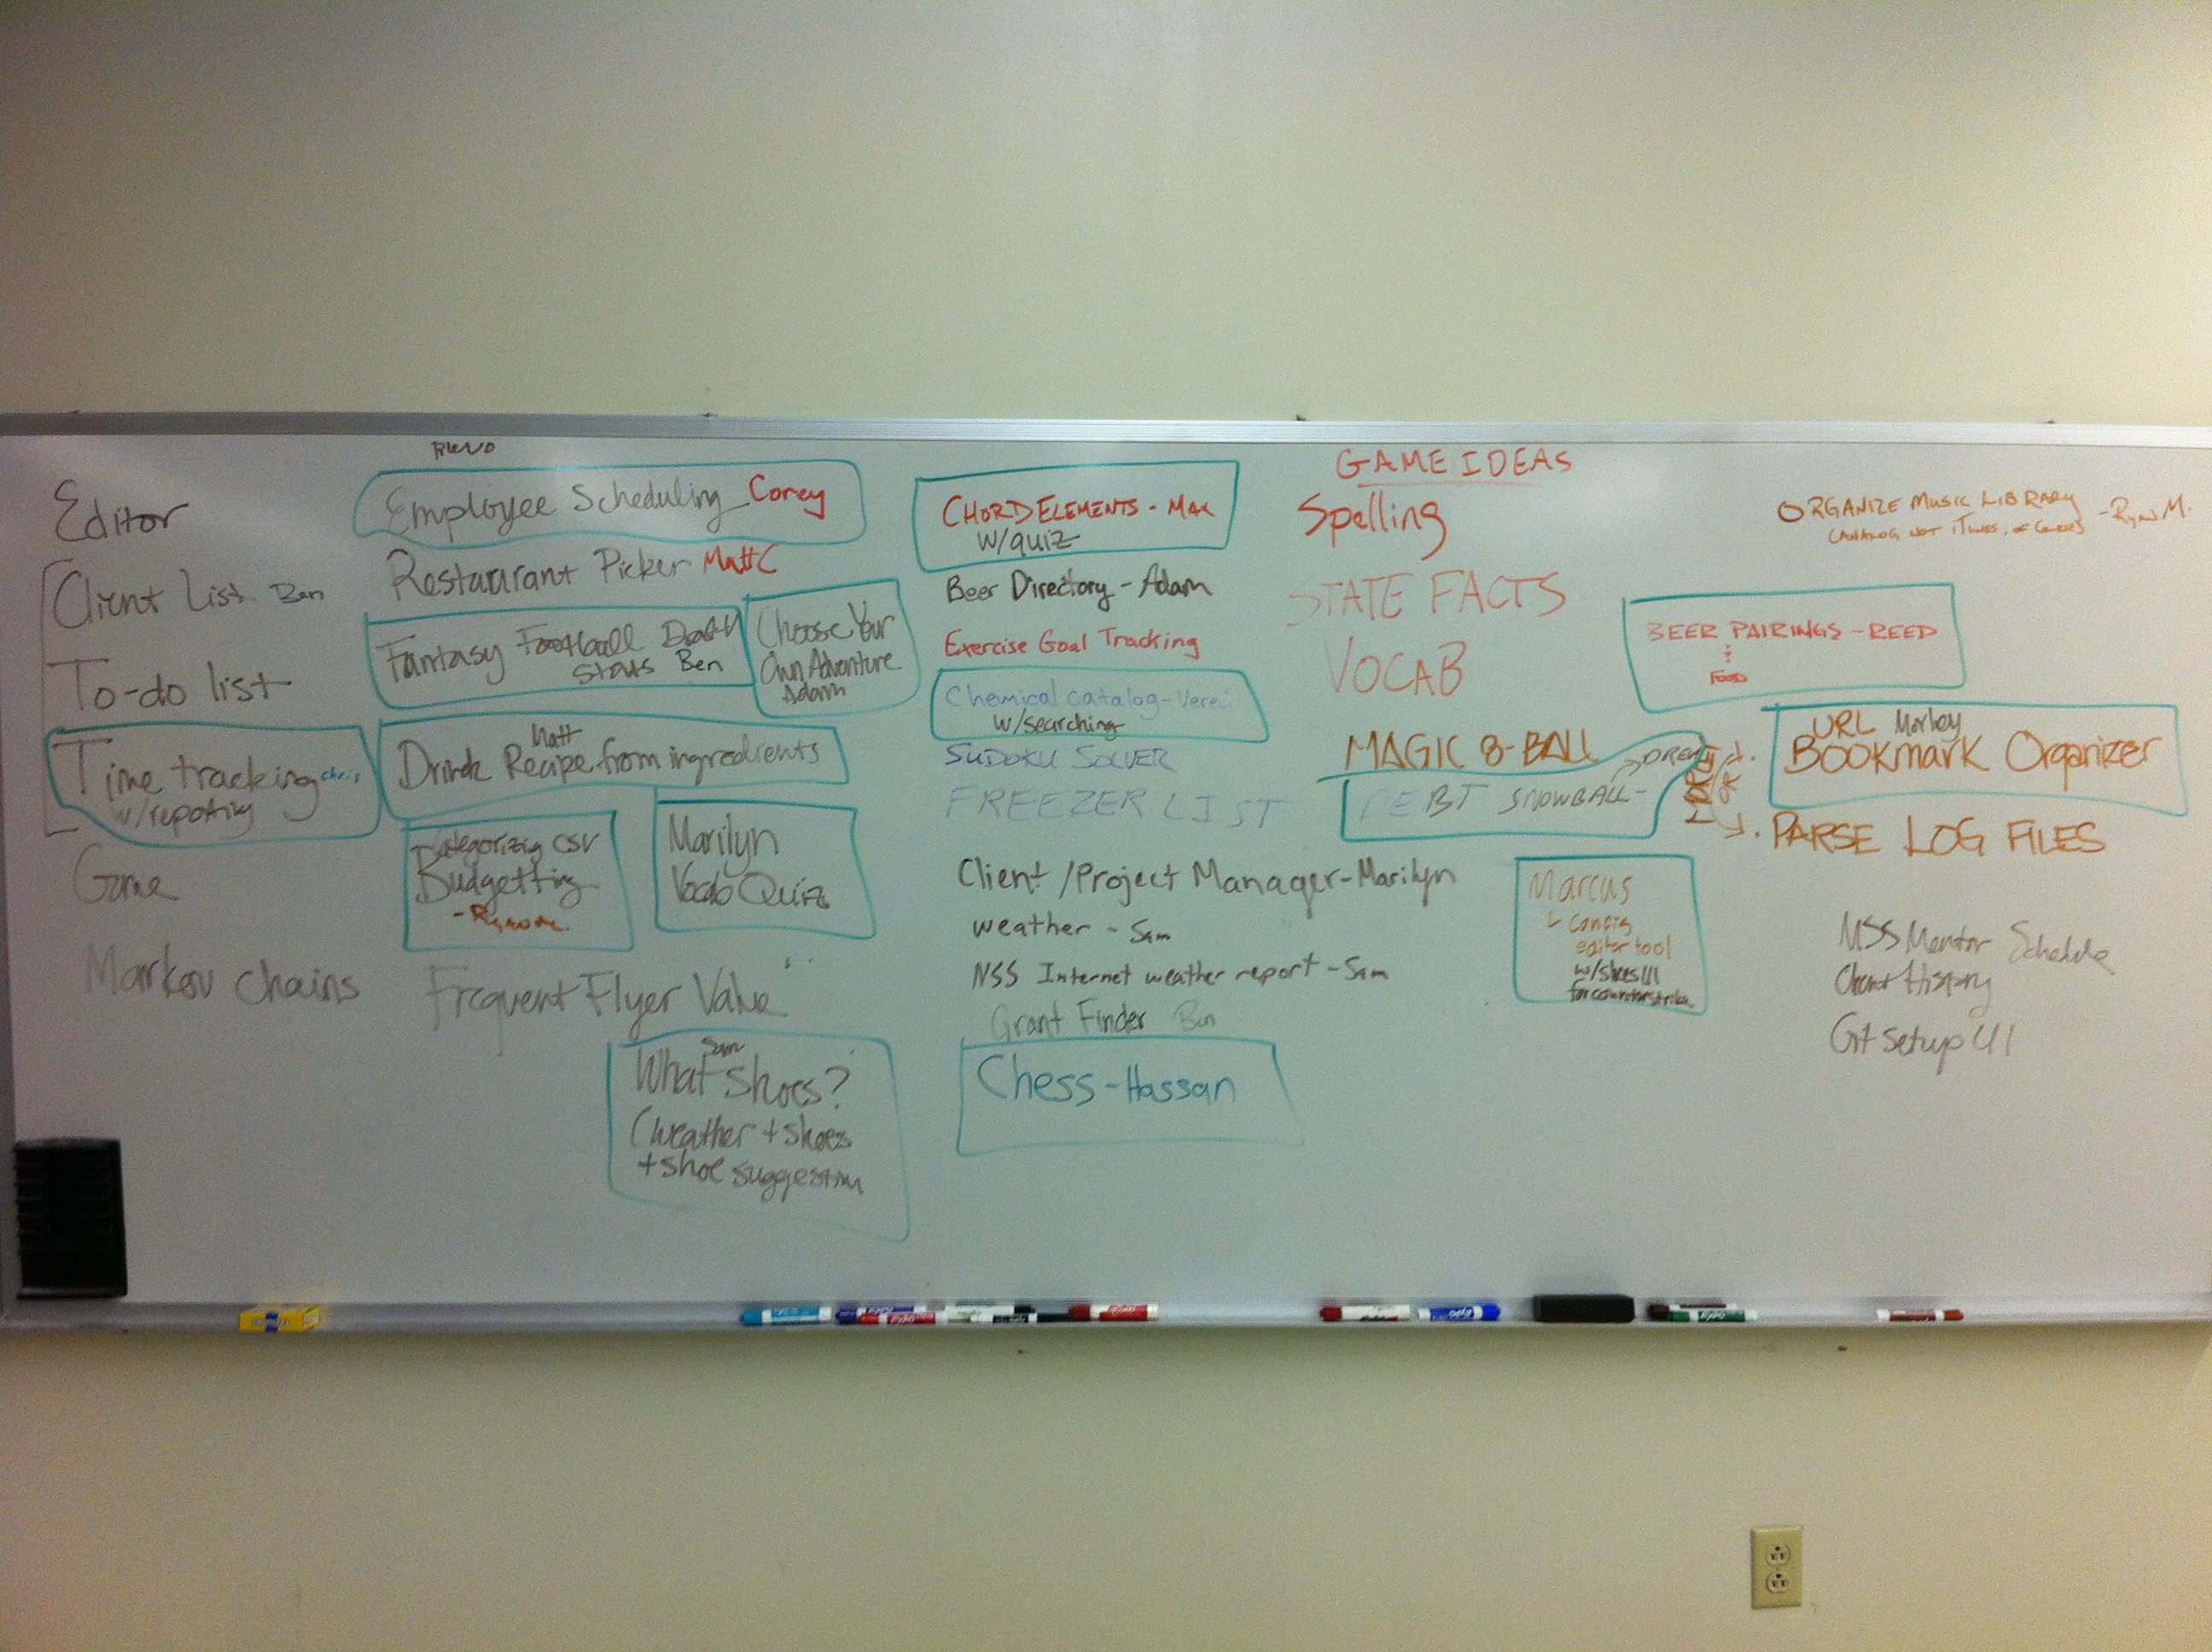 Editor
Client List Ben
To-do list
Time tracking Chris
w/reporting
Game
Markov Chains
Employee Scheduling Corey
Restaurant Picker Matt C
Fantasy Football Draft
Stats Ben
Choose Your
Own Adventure
Adam
Matt
Drink Recipe from ingredients
Categorizing CSV
Budgetting
Marilyn
Vocab Quiz
Frequent Flyer Value
Sam
What Shoes?
(weather + shoes
+ shoe suggestion
CHORD ELEMENTS - MAX
w/quiz
Beer Directory - Adam
Exercise Goal Tracking
Chemical catalog -
w/searching
SUDOKU SOLVER
FREEZER LIST
Client /Project Manager - Marilyn
weather - Sam
NSS Internet weather report - Sam
Grant Finder Ben
Chess - Hassan
GAME IDEAS
Spelling
STATE FACTS
VOCAB
MAGIC 8-BALL
DEBT SNOWBALL -
Marcus
Config
editor tool
w/shoes UI
for counterstrike
ORGANIZE MUSIC LIBRARY - Ryan M.
(ANALOG NOT iTunes, of course)
BEER PAIRINGS - REED
FOOD
URL Morley
BOOKMARK Organizer
OR
PARSE LOG FILES
NSS Mentor Schedule
Client History
Git setup UI